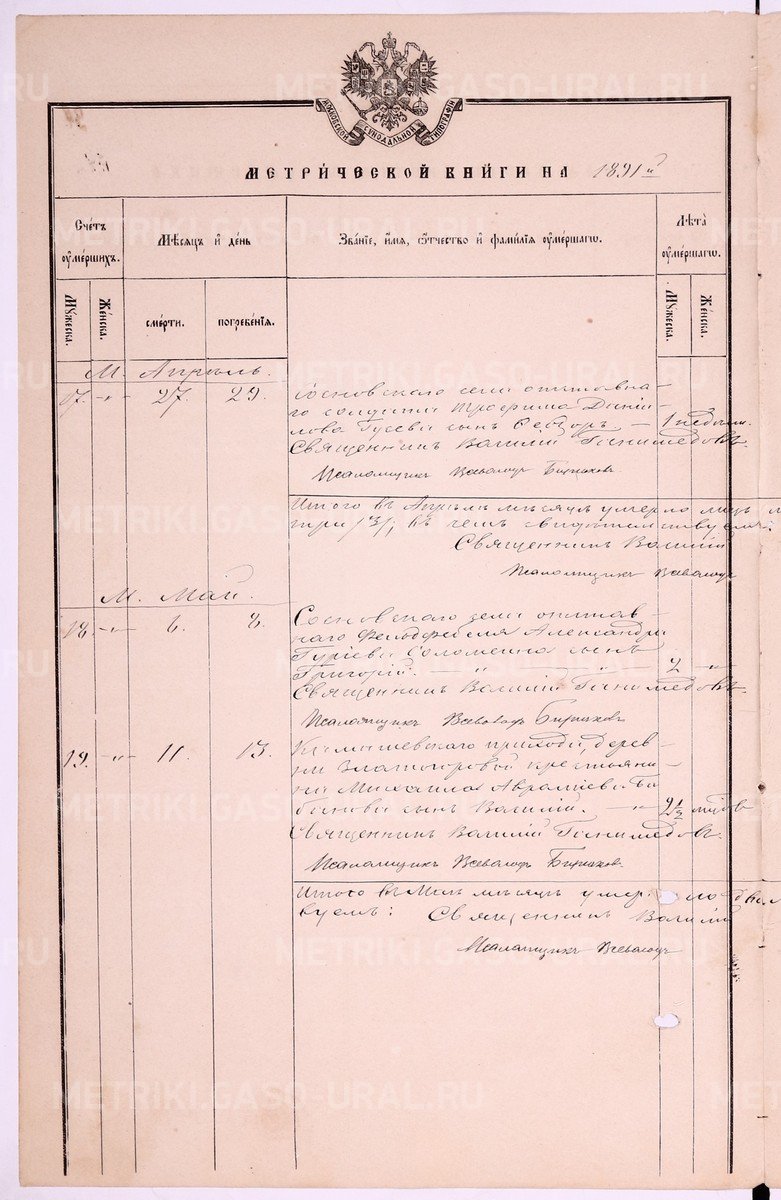 МОСКОВСКОЙ СѴНОДАЛЬНОЙ ТИПОГРАФІИ
МЕТРИ́ЧЕСКОЙ КНИ́ГИ НА 1891й
Счетъ ѹме́ршихъ.
Мѣ́сяцъ и҆ де́нь
Зва́нїе, и҆́мѧ, ѻ҆́тчество и҆ фами́лїѧ ѹме́ршагѡ.
Лѣта̀ ѹме́ршагѡ.
Му́жеска.
Же́нска.
сме́рти.
погребе́нїѧ.
Му́жеска.
Же́нска.
М. Апрѣль.
17. -„- 27. 29. Сосновскаго села отставна-
го солдата Трофима Дані-
лова Гусева сынъ Ѳедоръ — 1 недѣли.
Священникъ Василій Ганимедовъ
Псаломщикъ Всеволодъ Бирюковъ
Итого въ Апрѣлѣ мѣсяцѣ умерло лицъ
три /3/; въ чемъ свидѣтельствуемъ:
Священникъ Василій
Псаломщикъ Всеволодъ
М. Май.
18. -„- 6. 8. Сосновскаго села отстав-
наго Фельдфебеля Александра
Гурьева Соломеина сынъ
Григорій. — „ — „ — 2 „
Священникъ Василій Ганимедовъ
Псаломщикъ Всеволодъ Бирюковъ
19. -„- 11. 13. Камышевскаго прихода, дерев-
ни Златогоровой крестьяни-
на Михаила Авраміева Ба-
банова сынъ Василій. — „ 2½ мѣсяцовъ
Священникъ Василій Ганимедовъ.
Псаломщикъ Всеволодъ Бирюковъ.
Итого въ Маѣ мѣсяцѣ умерло два
вуемъ: Священникъ Василій
Псаломщикъ Всеволодъ
METRIKI.GASO-URAL.RU